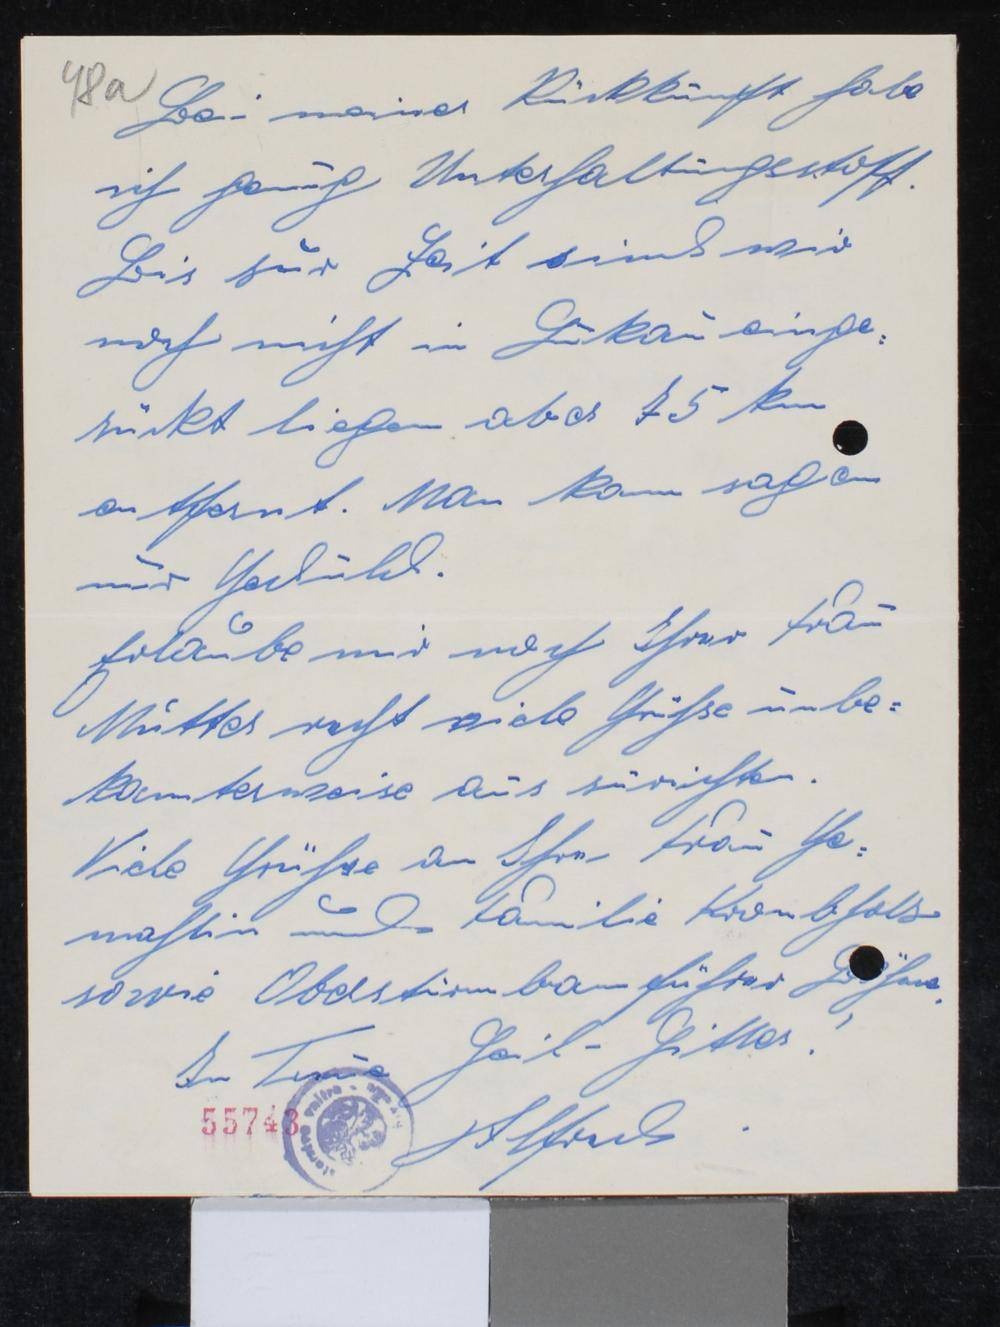 48a
Bei meiner Rückkunft habe
ich genug Unterhaltungsstoff.
Bis zur Zeit sind wir
noch nicht in Lukau einge=
rückt liegen aber 75 km
entfernt. Man kann sagen
nur Geduld.
Erlaube mir noch Ihrer Frau
Mutter recht viele Grüße unbe=
kannterweise aus zurichten.
Viele Grüße an Ihre Frau Ge=
mahlin und Familie Krombholz
sowie Obersturmbannführer
In Treue Heil-Hitler!
Alfred.
55743